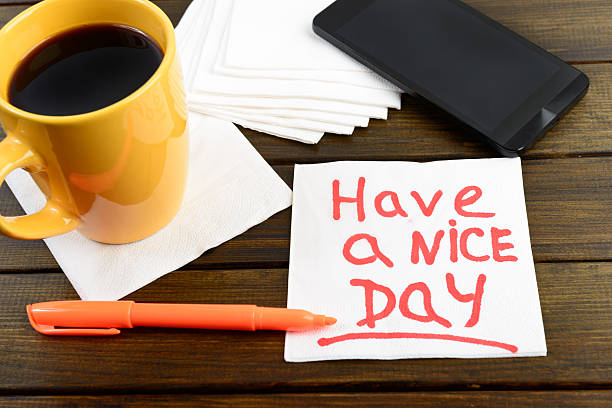 Have
a NiCE
DAY